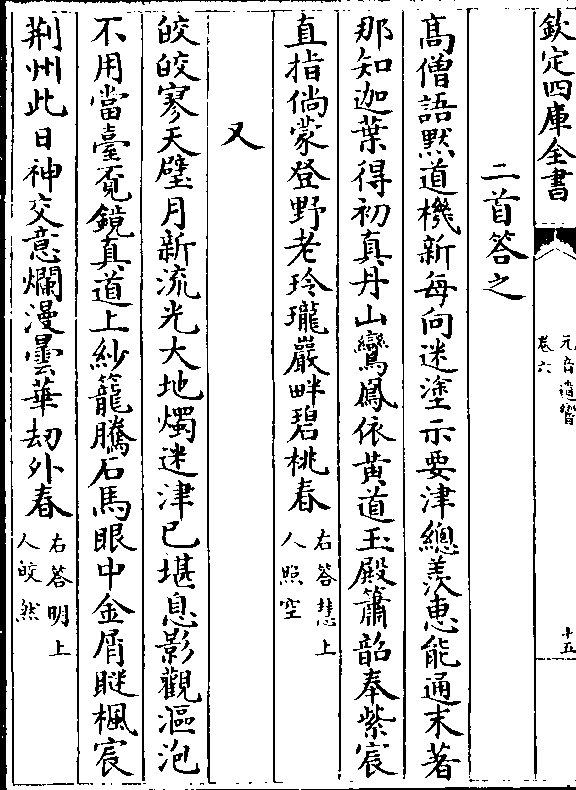 欽定四庫全書
元音遺響
卷六
十五
二首答之
髙僧語黙道機新每向迷塗示要津總羡惠能通末著
那知迦葉得初真丹山鸞鳳依黄道玉殿簫韶奉紫宸
直指倘蒙登野老玲瓏巖畔碧桃春
右答慧上
人照空
又
皎皎寥天璧月新流光大地燭迷津已堪息影觀漚泡
不用當臺覔鏡真道上紗籠騰石馬眼中金屑眯楓宸
荆州此日神交意爛漫曇華刼外春
右答明上
人皎然